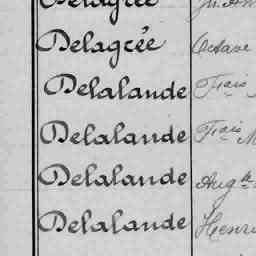 Delagrée
Delagrée Octave
Delalande Fçois
Delalande Fçois M
Delalande Augte
Delalande Henri